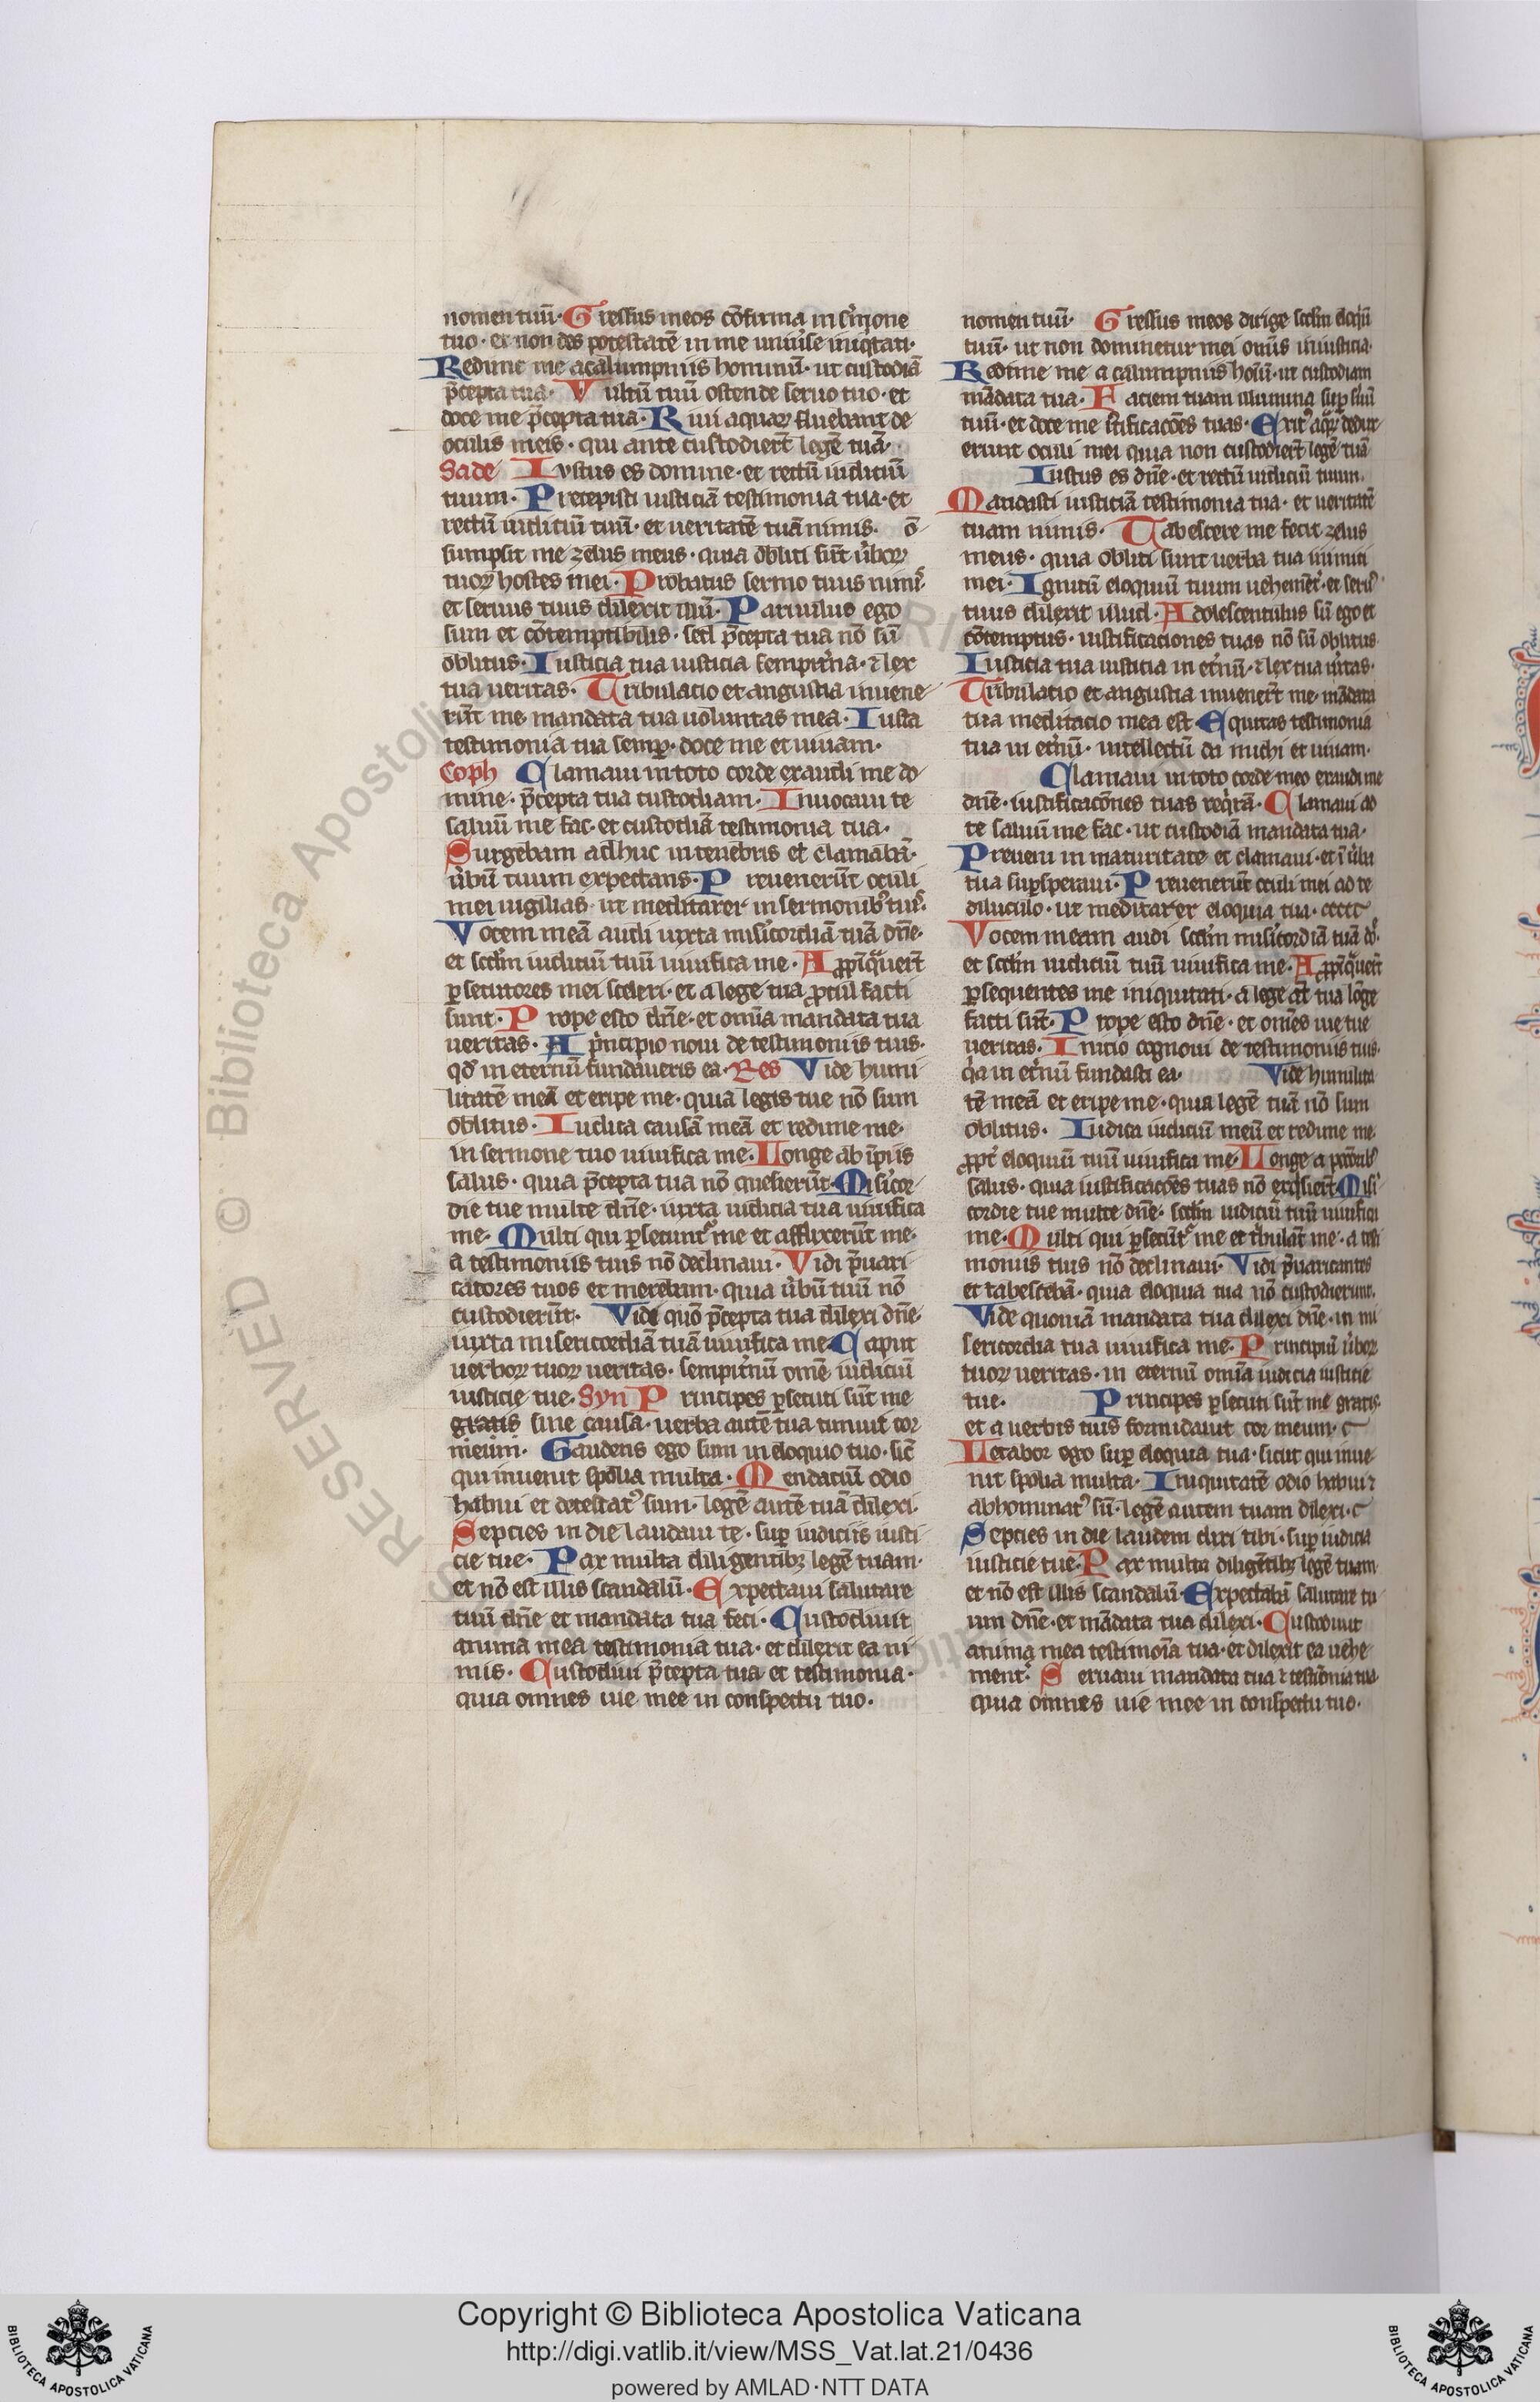 nomen tuū· Gressus meos cōfirma in s̾mone
tuo· et non des potestatē in me uniu̾se iniq̾tati·
Redime me a calumpniis hominū· ut custodiā
p̄cepta tua· Vultū tuū ostende seruo tuo· et
doce me p̄cepta tua· Riui aquaꝝ fluebant de
oculis meis· qui ante custodier̄t legē tuā·
Sade Iustus es domine· et rectū iudiciū
tuum· Precepisti iusticiā testimonia tua· et
rectū iudiciū tuū· et ueritatē tuā nimis· ō
sumpsit me zelus meus· quia obliti sūt u̾boꝝ
tuoꝝ hostes mei· Probatus sermo tuus nimis
et seruus tuus dilexit illū· Paruulus ego
sum et cōtemptibilis· sed p̄cepta tua nō sū
oblitus· Iusticia tua iusticia sempit̾na· ⁊ lex
tua ueritas· Tribulatio et angustia inuene
rūt me· mandata tua uoluntas mea· Iusta
testimonia tua semꝑ· doce me et uiuam·
Coph Clamaui in toto corde exaudi me do
mine· p̄cepta tua custodiam· Inuocaui te
saluū me fac· et custodiā testimonia tua·
Surgebam adhuc in tenebris et clamabā·
u̾bū tuum expectans· Preuenerūt oculi
mei uigilias· ut meditarer in sermonib; tuis·
Vocem meā audi iuxta mis̾icordiā tuā dn̄e·
et scd̄m iudiciū tuū uiuifica me· Aꝓpīquer̄t
ꝑsecutores mei sceleri· et a lege tua ꝓcul facti
sunt· Prope esto dn̄e· et omīa mandata tua
ueritas· A p̾ncipio noui de testimoniis tuis·
qd̄ in eternū fundaueris ea· Res Vide humi
litatē meā et eripe me· quia legis tue nō sum
oblitus· Iudica causā meā et redime me·
in sermone tuo uiuifica me· Longe ab īpiis
salus· quia p̄cepta tua nō quesierūt· Mis̾icor
die tue multe dn̄e· iuxta iudicia tua uiuifica
me· Multi qui ꝑsecunt̾ me et afflixerūt me·
a testimoniis tuis nō declinaui· Vidi p̄uari
catores tuos et merebam· quia u̾bū tuū nō
custodierūt· Vide quō p̄cepta tua dilexi dn̄e·
iuxta misericordiā tuā uiuifica me· Caput
uerboꝝ tuoꝝ ueritas· sempit̾nū omē iudiciū
iusticie tue· Syn Principes ꝑsecuti sūt me
gratis sine causa· uerba autē tua timuit cor
meum· Gaudens ego sum in eloquio tuo· sic̄
qui inuenit spolia multa· Mendaciū odio
habui et detestat᾽ sum· legē autē tuā dilexi·
Septies in die laudaui te· suꝑ iudiciis iusti
cie tue· Pax multa diligentibꝫ legē tuam·
et nō est illis scandalū· Expectaui salutare
tuū dn̄e et mandata tua feci· Custodiuit
anima mea testimonia tua· et dilexit ea ni
mis· Custodiui p̄cepta tua et testimonia·
quia omnes uie mee in conspectu tuo·
nomen tuū· Gressus meos dirige scd̄m eloq̾ū
tuū· ut non dominetur mei om̄is iniusticia·
Redime me a calumpniis hoīū· ut custodiam
mādata tua· Faciem tuam illumina suꝑ s̾uū
tuū· et doce me iustificacōes tuas· Exit᾽ aq̾ꝝ dedux
erunt oculi mei quia non custodier̄t legē tuā
Iustus es dn̄e· et rectū iudiciū tuum·
Mandasti iusticiā testimonia tua· et ueritatē
tuam nimis· Tabescere me fecit zelus
meus· quia obliti sunt uerba tua inimici
mei· Ignitū eloquiū tuum uehemēt̾· et seru᾽
tuus dilexit illud· Adolescentulus sū ego et
cōtemptus· iustificaciones tuas nō sū oblitus·
Iusticia tua iusticia in et̾nū· ⁊ lex tua u̾itas·
Tribulatio et angustia inuener̄t me· mādata
tua meditacio mea est Equitas testimonia
tua in et̾nū· intellectū da michi et uiuam·
Clamaui in toto corde meo exaudi me
dn̄e· iustificacōnes tuas req̾rā· Clamaui ad
te saluū me fac· ut custodiā mandata tua·
Preueni in maturitate et clamaui· et ī u̾ba
tua suꝑsperaui· Preuenerūt oculi mei ad te
diluculo· ut meditarer eloquia tua·
Vocem meam audi scd̄m mis̾icordiā tuā dn̄e·
et scd̄m iudiciū tuū uiuifica me· Aꝓpīquer̄t
ꝑsequentes me iniquitati· a lege aūt tua lōge
facti sūt· Prope esto dn̄e· et omēs uie tue
ueritas· Inicio cognoui de testimoniis tuis·
q̾a in et̾nū fundasti ea· Vide humilita
tē meā et eripe me· quia legē tuā nō sum
oblitus· Iudica iudiciū meū et redime me·
ꝓpt̾ eloquiū tuū uiuifica me· Longe a pctōrib᾽
salus· quia iustificacōes tuas nō exq̾sier̄t Mis̾i
cordie tue multe dn̄e· scd̄m iudiciū tuū uiuifica
me· Multi qui ꝑsecūt̾ me et t̾bulāt me· a testi
moniis tuis nō declinaui· Vidi p̄uaricantes
et tabescebā· quia eloquia tua nō custodierunt·
Vide quoniā mandata tua dilexi dn̄e· in mi
sericordia tua uiuifica me· Principiū u̾boꝝ
tuoꝝ ueritas· in eternū omīa iudicia iusticie
tue· Principes ꝑsecuti sūt me gratis·
et a uerbis tuis formidauit cor meum·
Letabor ego suꝑ eloquia tua· sicut qui inue
nit spolia multa· Iniquitatē odio habui ⁊
abhominat᾽ sū· legē autem tuam dilexi·
Septies in die laudem dixi tibi· suꝑ iudicia
iusticie tue· Pax multa diligētibꝫ legē tuam
et nō est illis scandalū· Expectabā salutare tu
um dn̄e· et mādata tua dilexi· Custodiuit
anima mea testimoīa tua· et dilexit ea uehe
ment̾· Seruaui mandata tua ⁊ testiōnia tua
quia omnes uie mee in conspectu tuo·
RESERVED © Biblioteca Apostolica
Copyright © Biblioteca Apostolica Vaticana
http://digi.vatlib.it/view/MSS_Vat.lat.21/0436
powered by AMLAD·NTT DATA
BIBLIOTECA APOSTOLICA VATICANA
BIBLIOTECA APOSTOLICA VATICANA